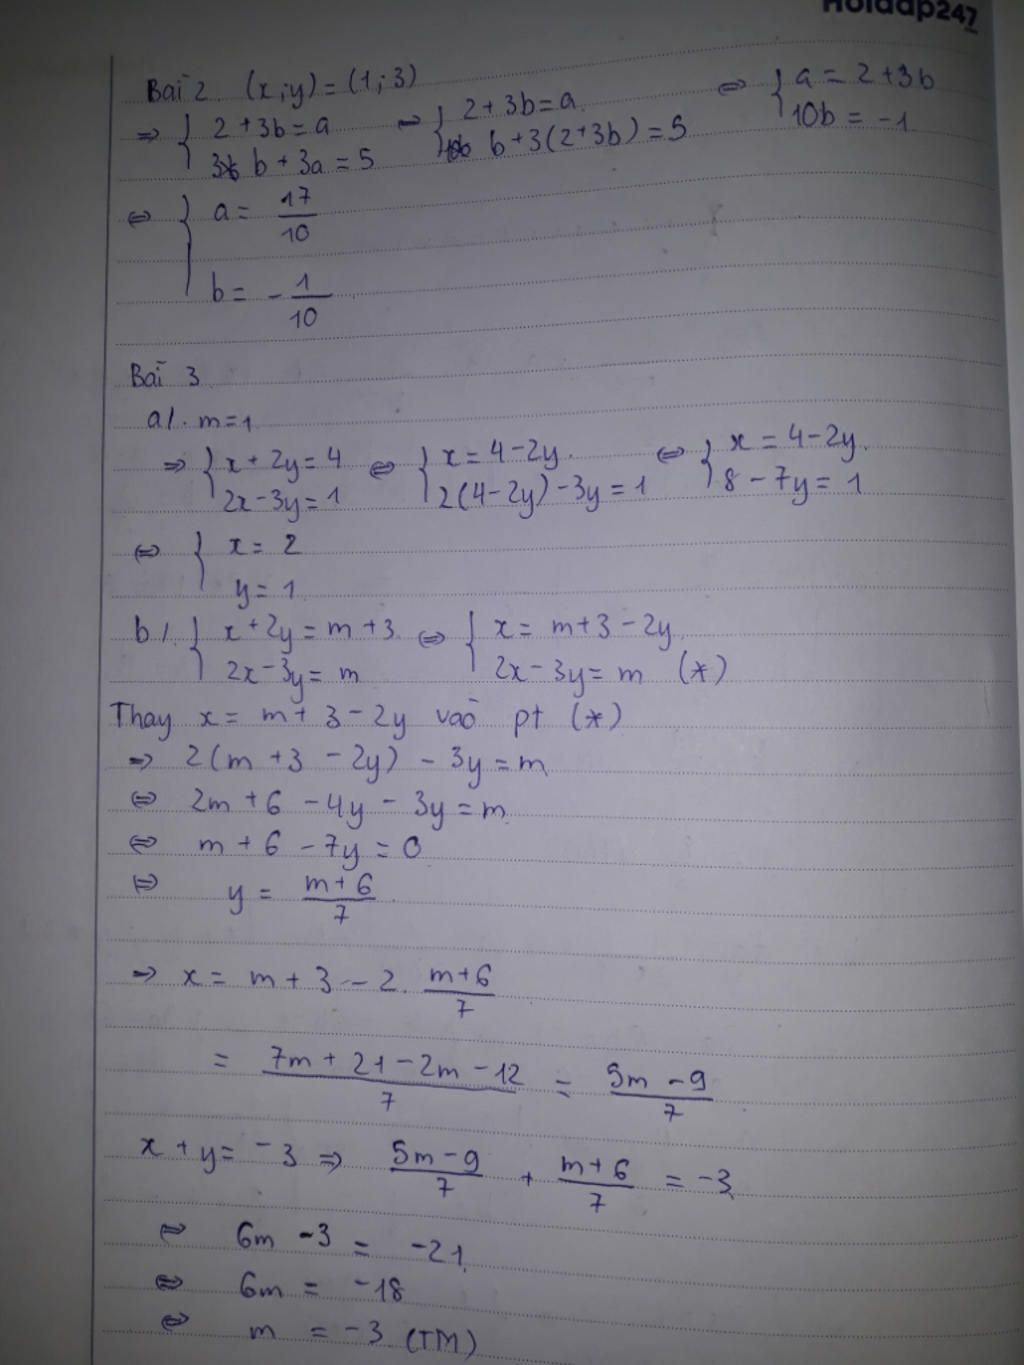 Hoidap247
Bài 2 (x;y)=(1;3)
=> { 2+3b=a <=> { 2+3b=a <=> { a=2+3b
b+3a=5 b+3(2+3b)=5 10b=-1
<=> { a= 17/10
b= -1/10
Bài 3
a/. m=1
=> { x+2y=4 <=> { x=4-2y. <=> { x=4-2y.
2x-3y=1 2(4-2y)-3y=1 8-7y=1
<=> { x=2
y=1
b/. { x+2y=m+3 <=> { x=m+3-2y
2x-3y=m 2x-3y=m (*)
Thay x=m+3-2y vào pt (*)
=> 2(m+3-2y)-3y=m
<=> 2m+6-4y-3y=m
<=> m+6-7y=0
<=> y= m+6/7
=> x=m+3-2. m+6/7
= 7m+21-2m-12/7 = 5m-9/7
x+y=-3 => 5m-9/7 + m+6/7 =-3
<=> 6m-3=-21
<=> 6m=-18
<=> m=-3 (TM)